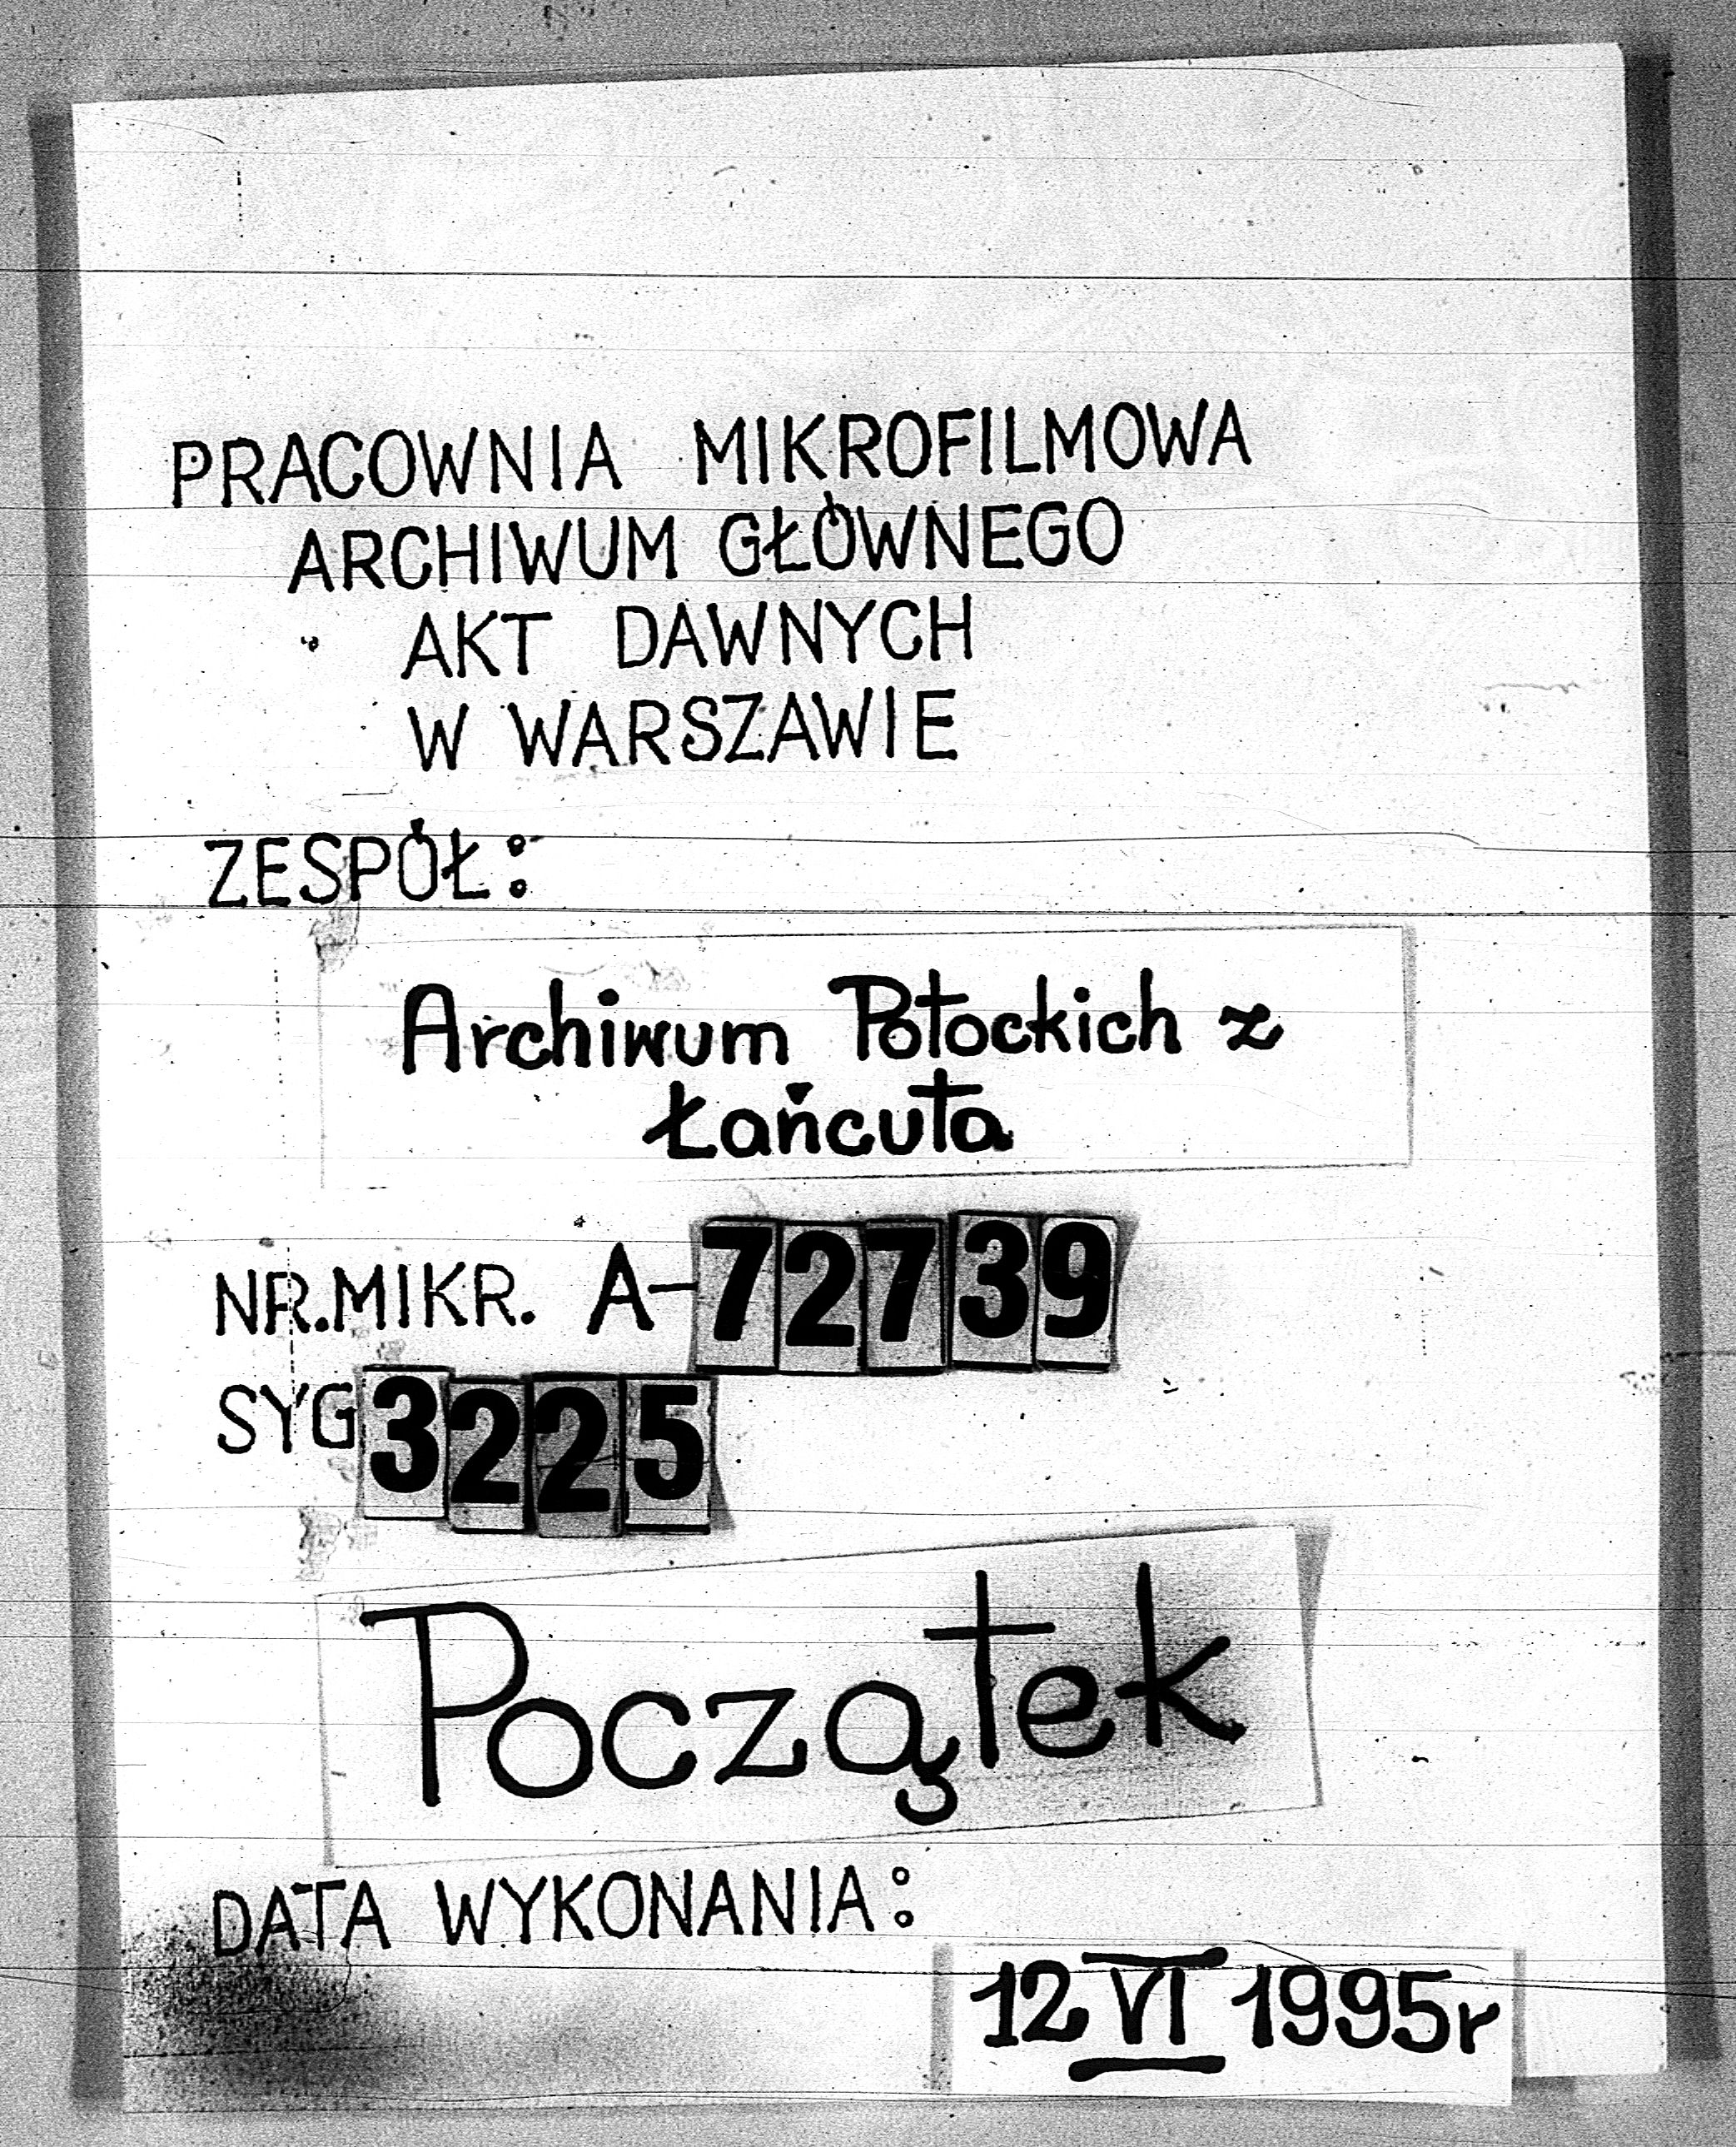 PRACOWNIA MIKROFILMOWA
ARCHIWUM GŁÓWNEGO
AKT DAWNYCH
W WARSZAWIE
ZESPÓŁ:
Archiwum Potockich z
Łańcuta
NR.MIKR. A-72739
SYG 3225
Początek
DATA WYKONANIA:
12 VI 1995r